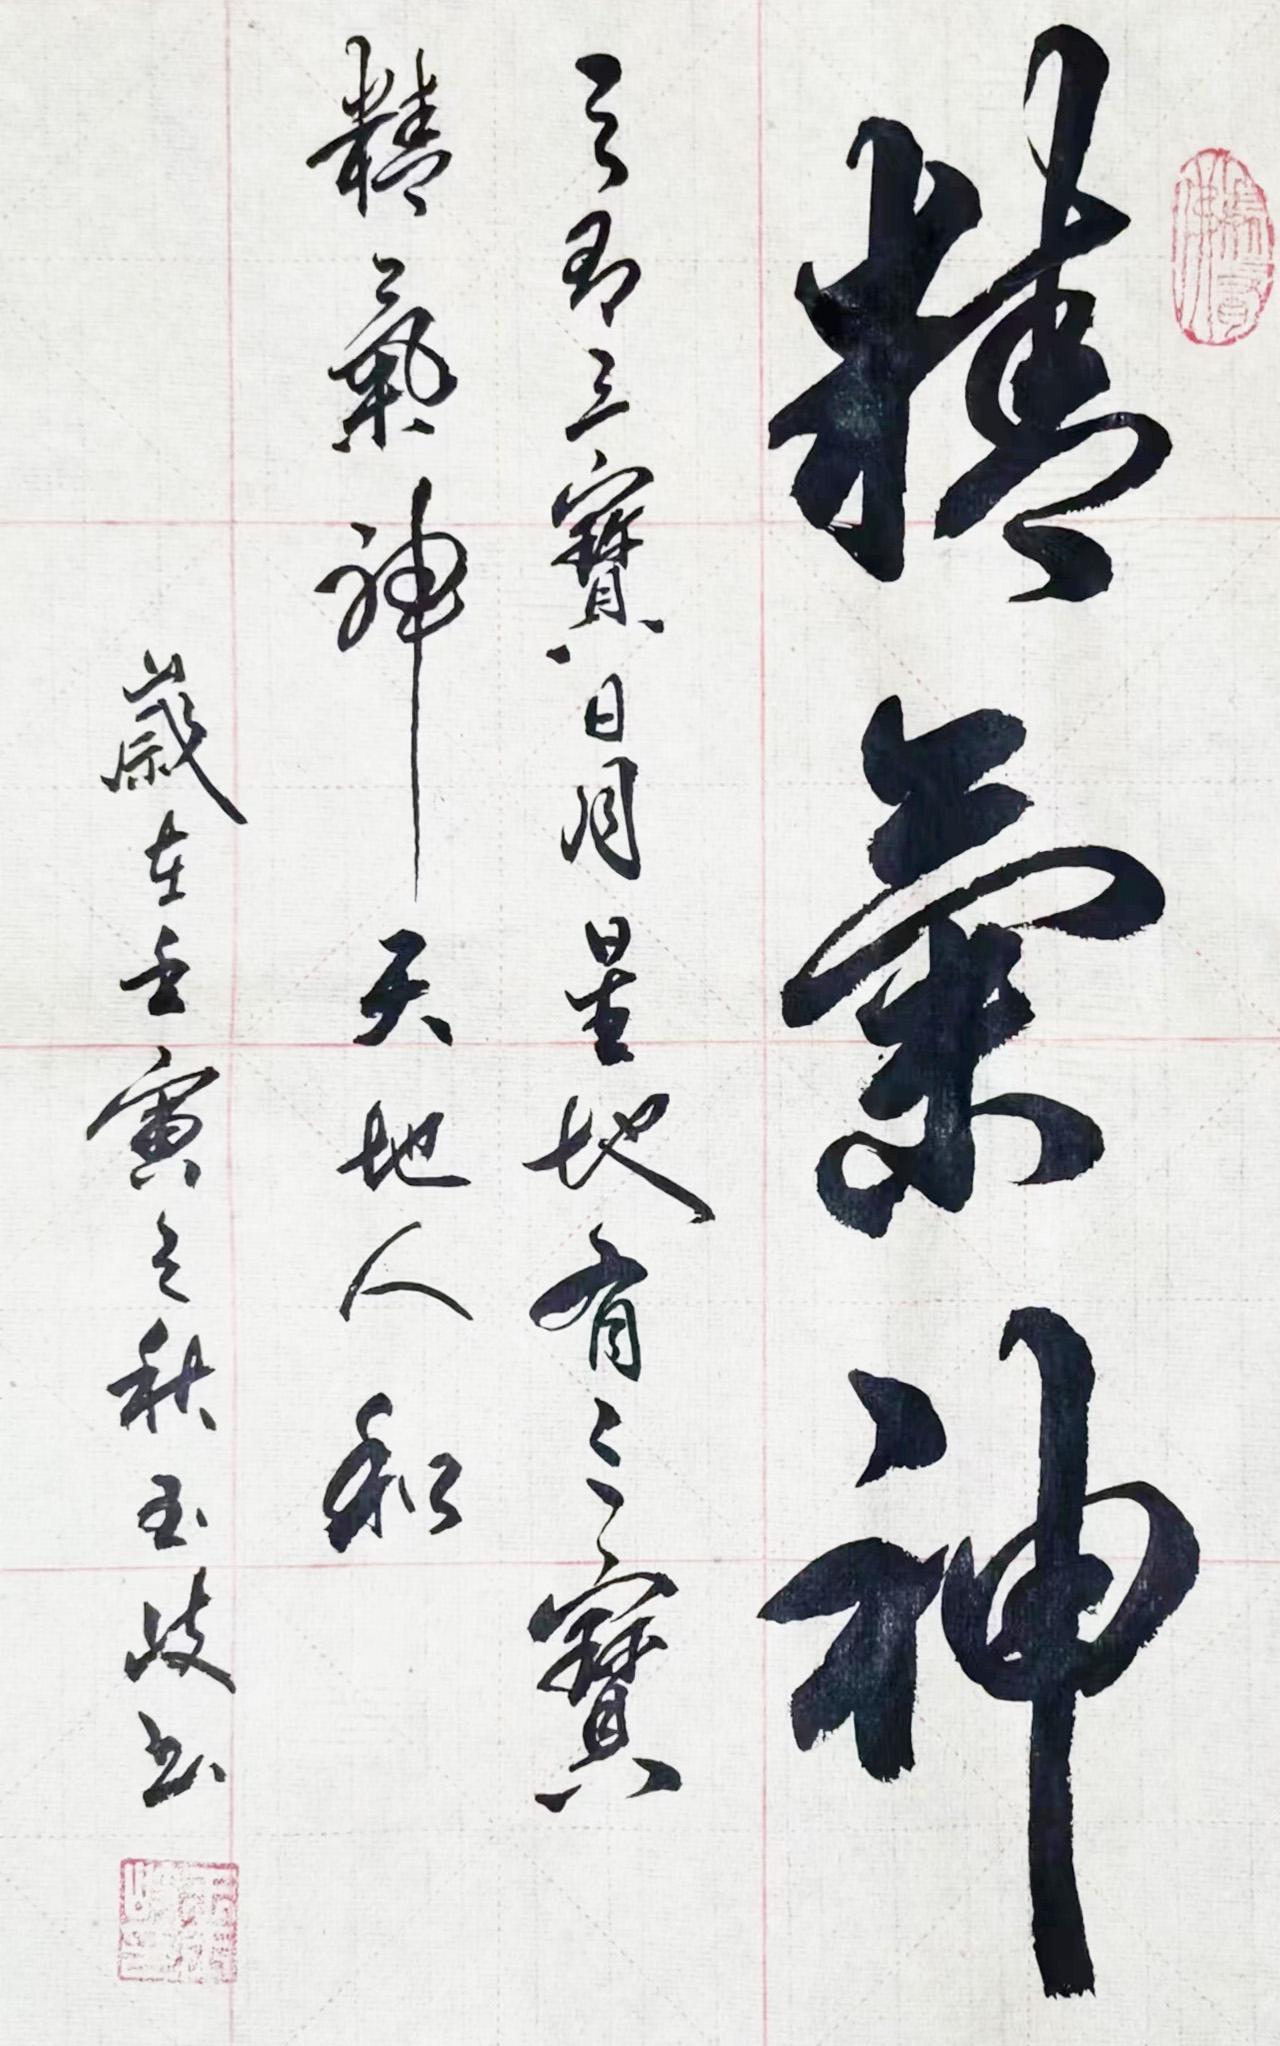 精氣神
云即三寶日月星地有三寶
精氣神天地人和
歲在壬寅之秋玉岐书